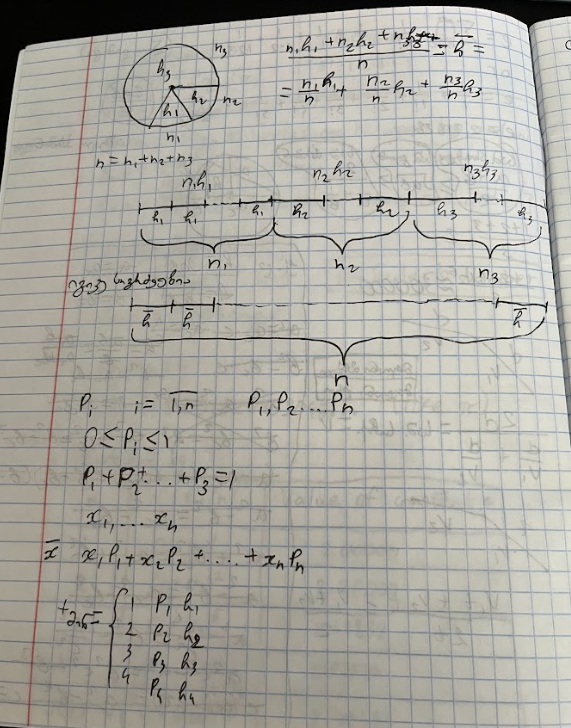 n₃
h₃
h₂ n₂
h₁
n₁
n = n₁+n₂+n₃
(n₁h₁ + n₂h₂ + n₃h₃)/n = h̅ =
= n₁/n h₁ + n₂/n h₂ + n₃/n h₃
n₁h₁ n₂h₂ n₃h₃
h₁ h₁ h₁ h₂ h₂ h₃ h₃
n₁ n₂ n₃
h̅ h̅ h̅
n
Pᵢ i = 1,n P₁, P₂ ... Pn
0 ≤ Pᵢ ≤ 1
P₁ + P₂ + ... + P₃ = 1
x₁, ... xn
x̅ x₁P₁ + x₂P₂ + .... + xnPn
1 P₁ h₁
2 P₂ h₂
3 P₃ h₃
4 P₄ h₄